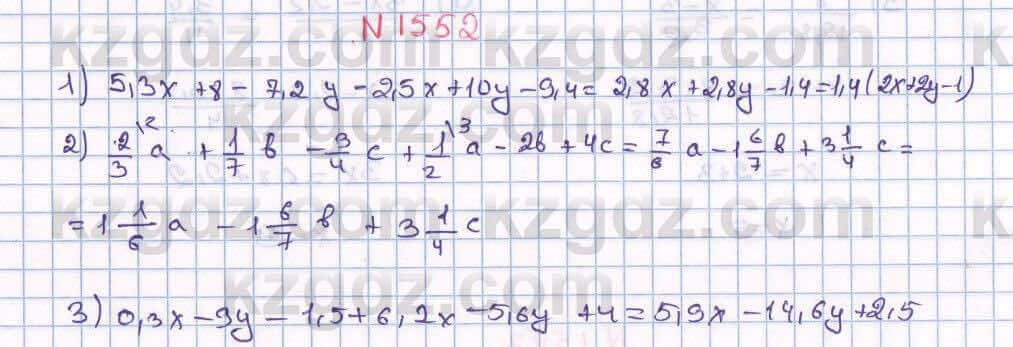 N 1552
1) 5,3x + 8 - 7,2y - 2,5x + 10y - 9,4 = 2,8x + 2,8y - 1,4 = 1,4(2x+2y-1)
2) 2/3\2 a + 1/7 b - 3/4 c + 1/2\3 a - 2b + 4c = 7/6 a - 1 6/7 b + 3 1/4 c =
= 1 1/6 a - 1 6/7 b + 3 1/4 c
3) 0,3x - 9y - 1,5 + 6,2x - 5,6y + 4 = 5,9x - 14,6y + 2,5
kzgdz.com